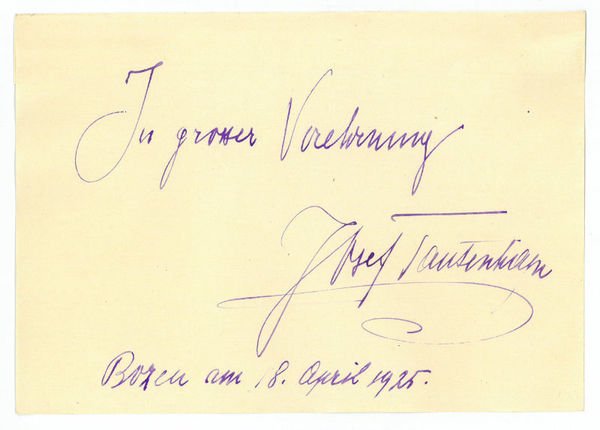 In grosser Verehrung
Josef Tautenhayn
Bozen am 18. April 1925.